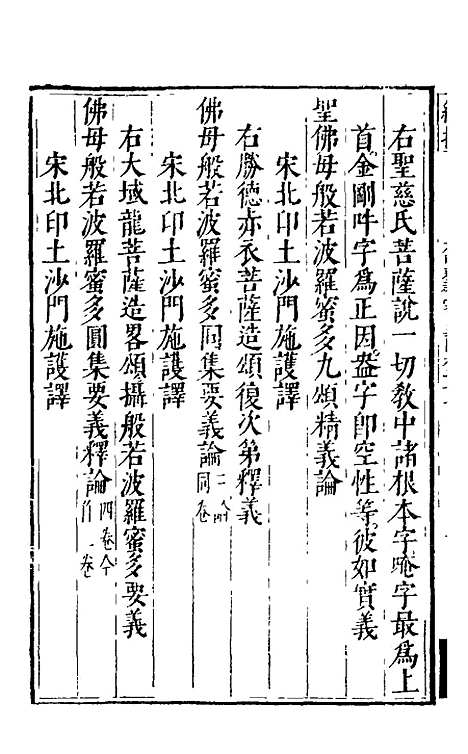 右聖慈氏菩薩說一切教中諸根本字唵字最為上
首金剛吽字為正因㗶字卽空性等彼如實義
聖佛母般若波羅蜜多九頌精義論
宋北印土沙門施護譯
右勝德赤衣菩薩造頌復次第釋義
佛母般若波羅蜜多圓集要義論
同卷
宋北印土沙門施護譯
右大域龍菩薩造畧頌攝般若波羅蜜多要義
佛母般若波羅蜜多圓集要義釋論四卷今作一卷
宋北印土沙門施護譯